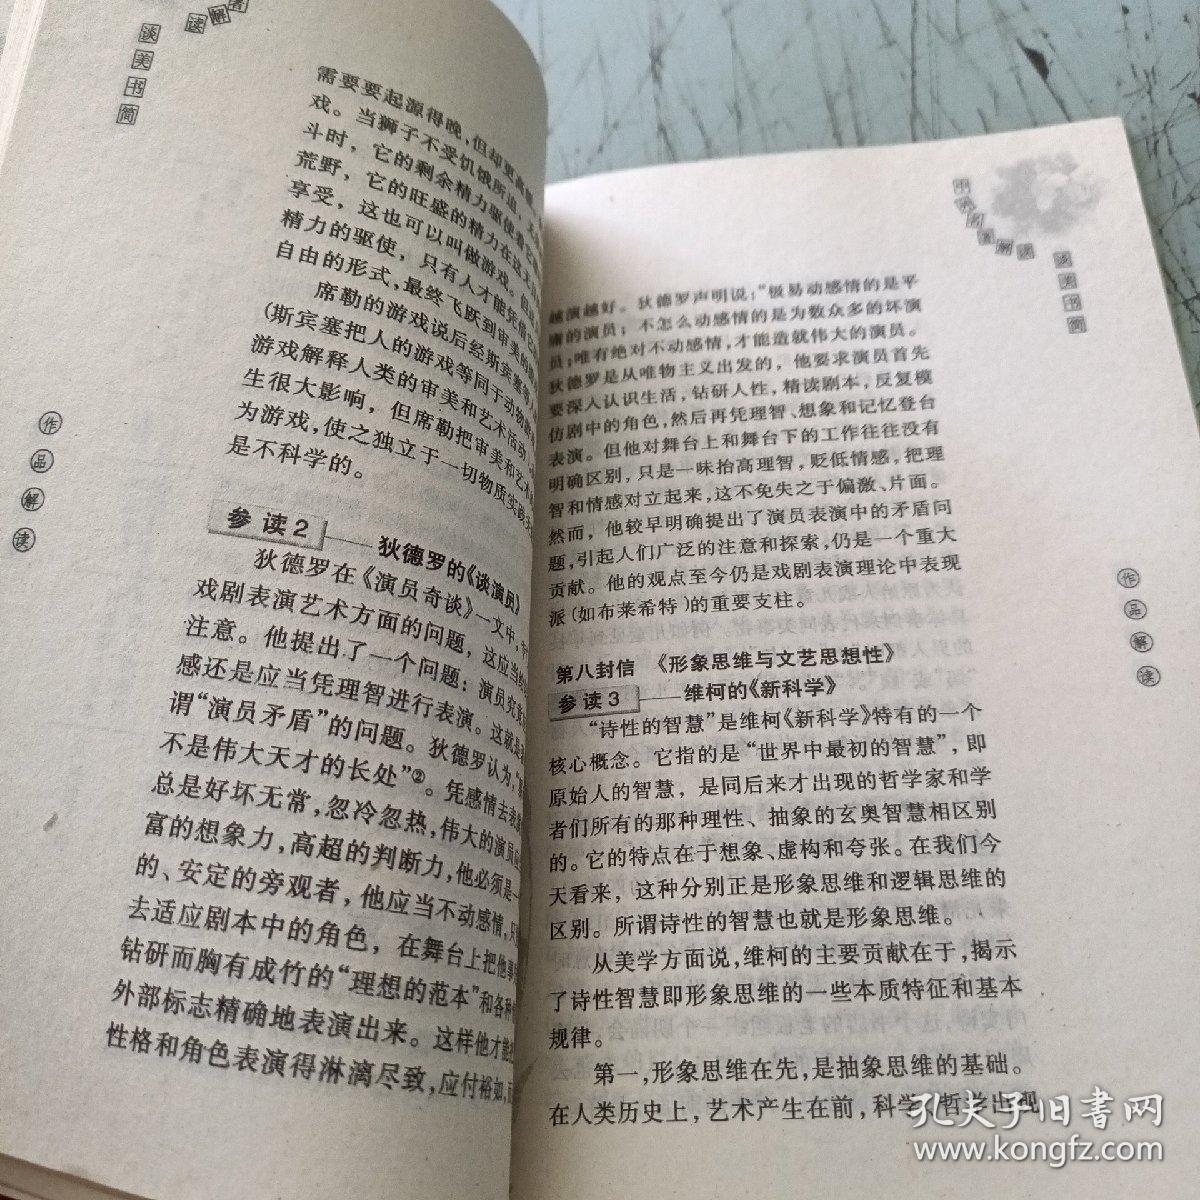 读解者
谈美书简
需要要起源得晚，但却更高
戏。当狮子不受饥饿所迫，
斗时，它的剩余精力驱使着它
荒野，它的旺盛的精力在这
享受，这也可以叫做游戏。但
精力的驱使，只有人才能凭借它
自由的形式，最终飞跃到审美的
席勒的游戏说后经斯宾塞等
(斯宾塞把人的游戏等同于动物
游戏解释人类的审美和艺术活动
生很大影响，但席勒把审美和艺
为游戏，使之独立于一切物质实践
是不科学的。
参读2——狄德罗的《谈演员》
狄德罗在《演员奇谈》一文中，
戏剧表演艺术方面的问题，这应当
注意。他提出了一个问题：演员究竟
感还是应当凭理智进行表演。这就是
谓“演员矛盾”的问题。狄德罗认为，
不是伟大天才的长处”②。凭感情去表
总是好坏无常，忽冷忽热，伟大的演员
富的想象力，高超的判断力，他必须是一
的、安定的旁观者，他应当不动感情，只
去适应剧本中的角色，在舞台上把他事
钻研而胸有成竹的“理想的范本”和各种
外部标志精确地表演出来。这样他才能
性格和角色表演得淋漓尽致，应付裕如，
作品解读
谈美书简
越演越好。狄德罗声明说：“极易动感情的是平
庸的演员；不怎么动感情的是为数众多的坏演
员；唯有绝对不动感情，才能造就伟大的演员。
狄德罗是从唯物主义出发的，他要求演员首先
要深入认识生活，钻研人性，精读剧本，反复模
仿剧中的角色，然后再凭理智、想象和记忆登台
表演。但他对舞台上和舞台下的工作往往没有
明确区别，只是一味抬高理智，贬低情感，把理
智和情感对立起来，这不免失之于偏激、片面。
然而，他较早明确提出了演员表演中的矛盾问
题，引起人们广泛的注意和探索，仍是一个重大
贡献。他的观点至今仍是戏剧表演理论中表现
派(如布莱希特)的重要支柱。
第八封信 《形象思维与文艺思想性》
参读3——维柯的《新科学》
“诗性的智慧”是维柯《新科学》特有的一个
核心概念。它指的是“世界中最初的智慧”，即
原始人的智慧，是同后来才出现的哲学家和学
者们所有的那种理性、抽象的玄奥智慧相区别
的。它的特点在于想象、虚构和夸张。在我们今
天看来，这种分别正是形象思维和逻辑思维的
区别。所谓诗性的智慧也就是形象思维。
从美学方面说，维柯的主要贡献在于，揭示
了诗性智慧即形象思维的一些本质特征和基本
规律。
第一，形象思维在先，是抽象思维的基础。
在人类历史上，艺术产生在前，科学、哲学出现
作品解读
孔夫子旧书网
www.kongfz.com